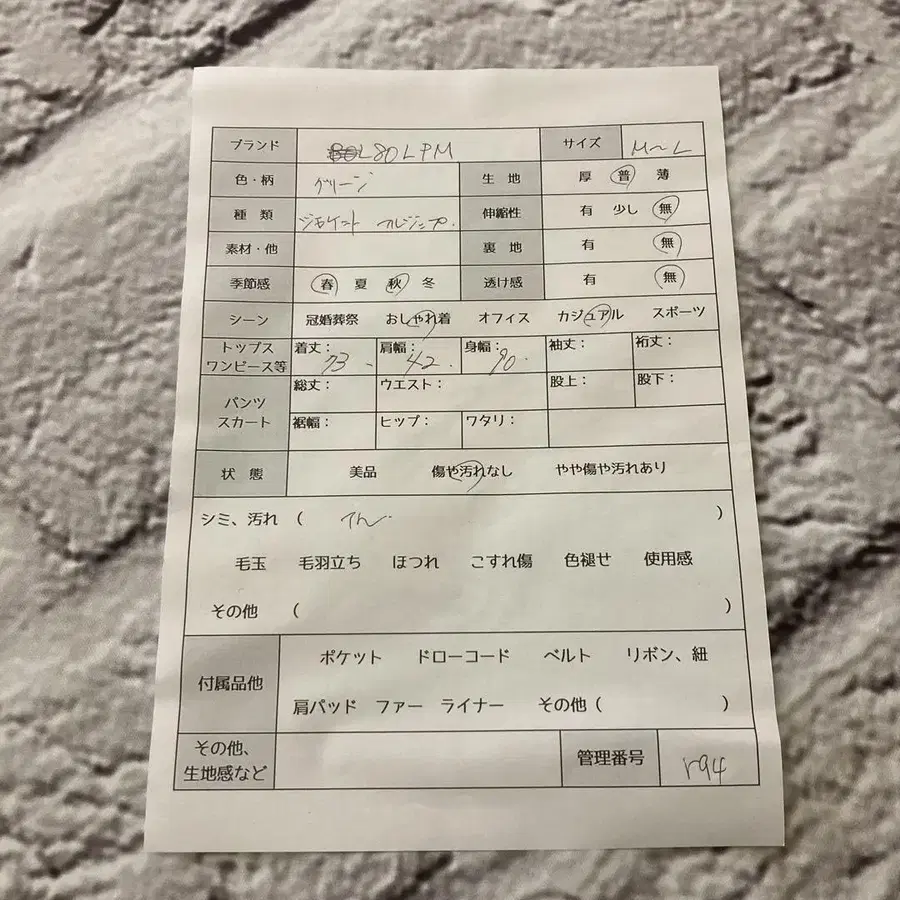 ブランド 80LPM サイズ M〜L
色・柄 グリーン 生地 厚 普 薄
種類 ジャケット フルジップ. 伸縮性 有 少し 無
素材・他 裏地 有 無
季節感 春 夏 秋 冬 透け感 有 無
シーン 冠婚葬祭 おしゃれ着 オフィス カジュアル スポーツ
トップス ワンピース等 着丈: 73 肩幅: 42. 身幅: 袖丈: 裄丈:
パンツ スカート 総丈: ウエスト: 股上: 股下:
裾幅: ヒップ: ワタリ:
状態 美品 傷や汚れなし やや傷や汚れあり
シミ、汚れ ( )
毛玉 毛羽立ち ほつれ こすれ傷 色褪せ 使用感
その他 ( )
付属品他 ポケット ドローコード ベルト リボン、紐
肩パッド ファー ライナー その他 ( )
その他、
生地感など 管理番号 r94